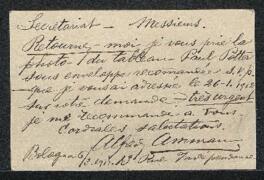 Secretariat — Messieurs.
Retournez-moi je vous prie la
photo du tableau Paul Potter
sous enveloppe recommandée S.V.p.
que je vous ai adressé le 26-1-1912
sur votre demande = très urgent
je me recommande à Vous
Cordiales salutations.
Alfred Ammann
Bologna